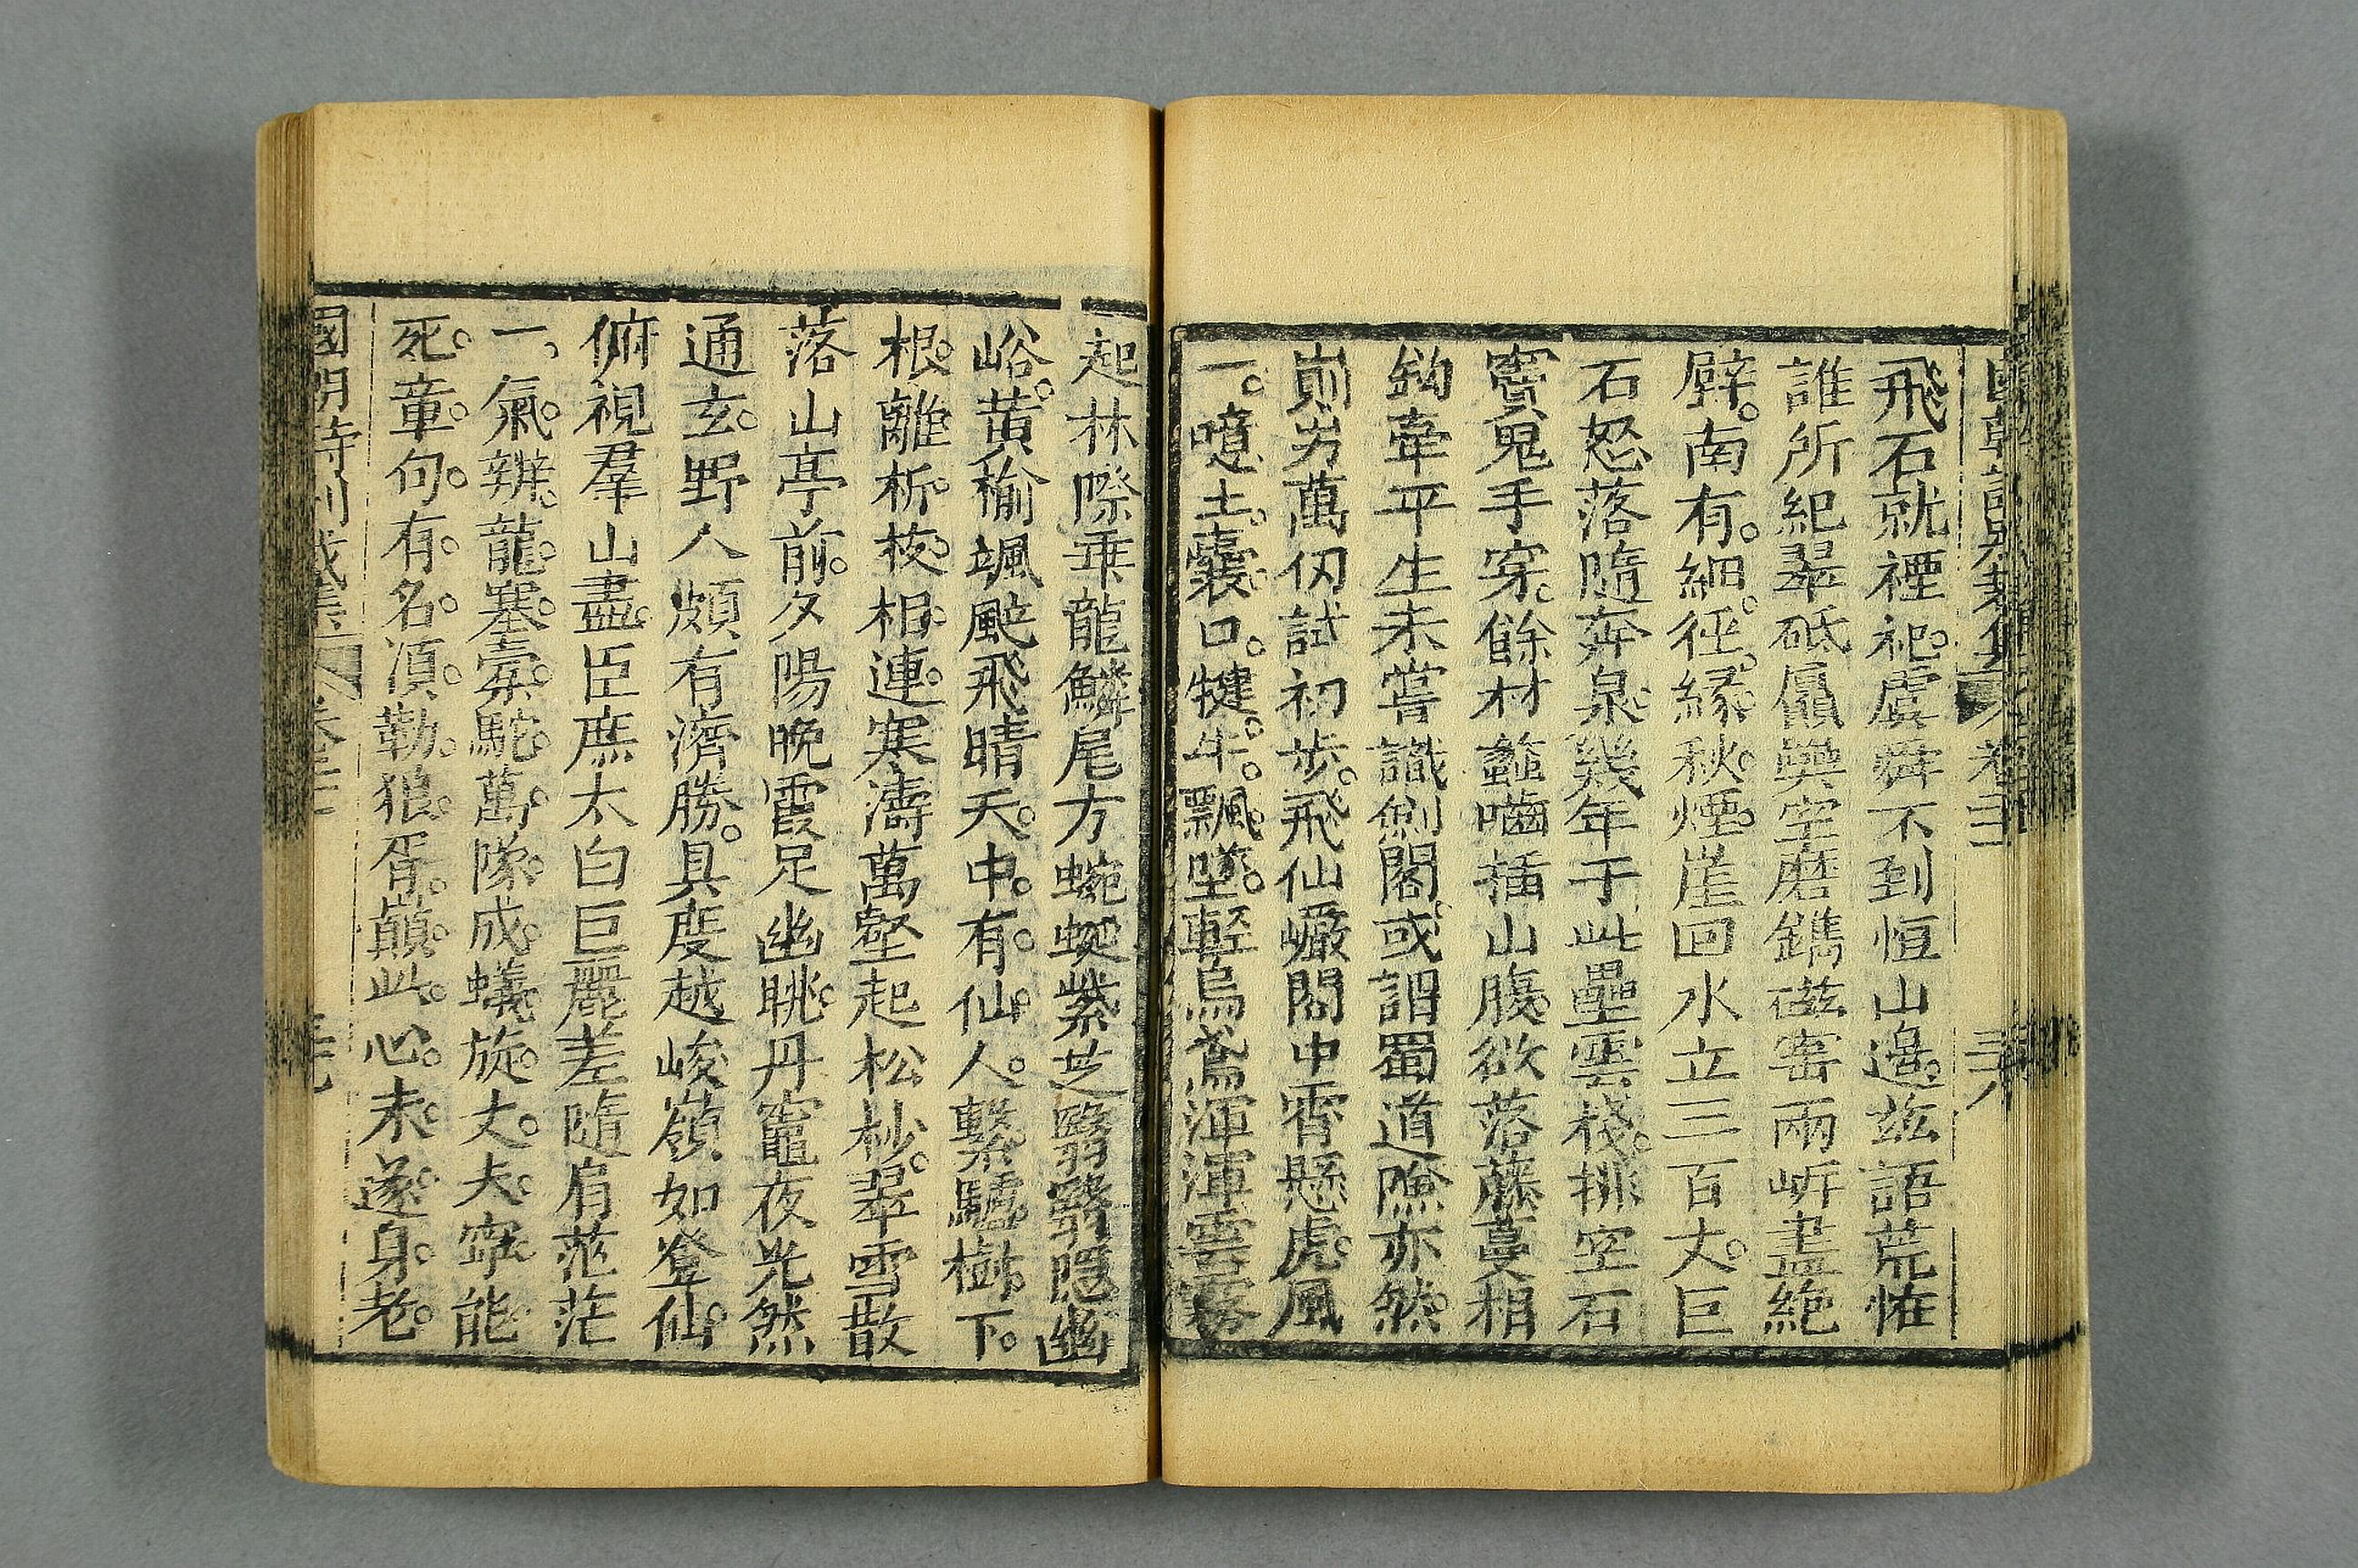 國朝詩別裁集 卷三 三八
飛石就禋祀虞舜不到恒山邊茲語荒怪
誰所紀翠砥屭奰空磨鐫磁窑兩岍盡絕
壁南有細徑緣秋煙崖回水立三百丈巨
石怒落隨奔泉幾年于此壘雲棧排空石
竇鬼手穿餘材齾嚙插山腹欲落藤蔓相
鉤牽平生未嘗識劍閣或謂蜀道險亦然
崱屴萬仞試初步飛仙巖閣中霄懸虎風
一噫土囊口犍牛飄墜輕烏鳶渾渾雲霧
起林際乖龍鱗尾方蜿蜒紫芝翳翳隱幽
峪黃榆颯颯飛晴天中有仙人繫驢樹下
根離析枝相連寒濤萬壑起松杪翠雪散
落山亭前夕陽晚霞足幽眺丹竈夜光然
通玄野人頗有濟勝具度越峻嶺如登仙
俯視羣山盡臣庶太白巨麗差隨肩茫茫
一氣辨龍塞橐駝萬隊成蟻旋丈夫寧能
死章句有名須勒狼胥巔此心未遂身老
國朝詩別裁集 卷三 三九